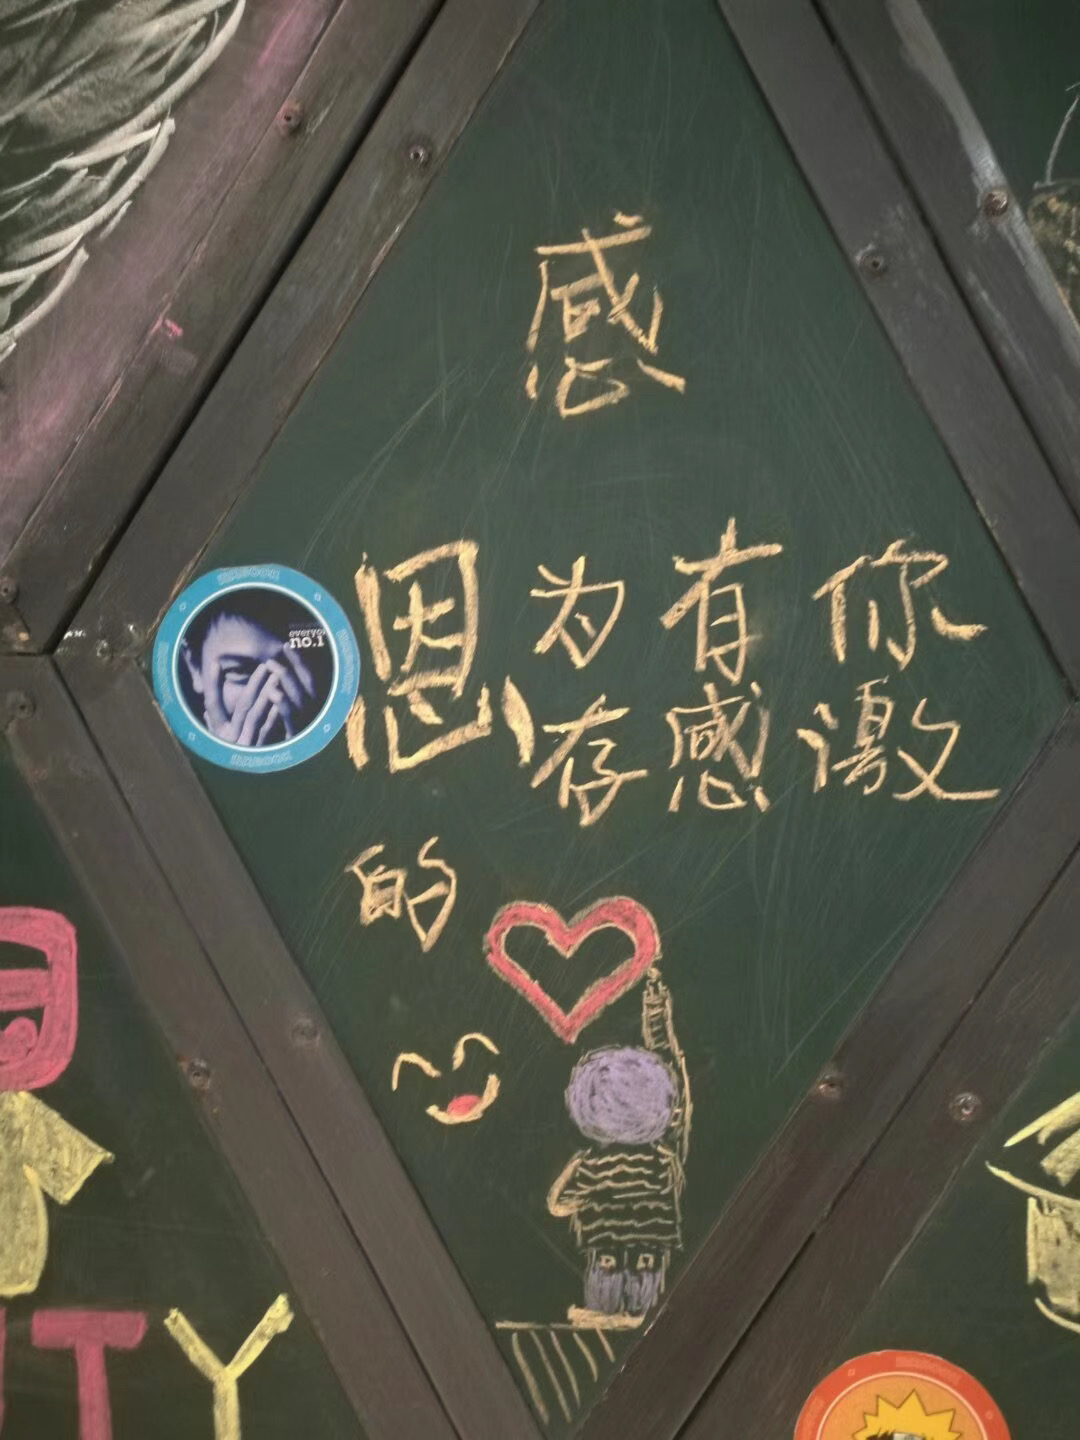 感
恩因为有你
存感激
的
everyo
no.1
TY